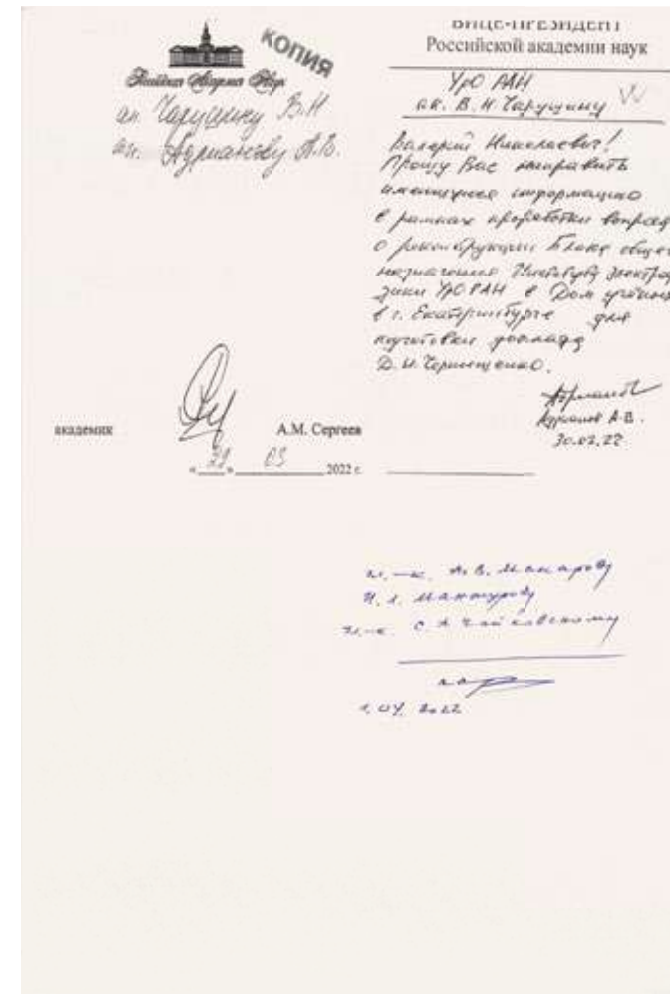 КОПИЯ
ак. Чарушину В.Н
ак. Адрианову А.В.
академик
А.М. Сергеев
« 29 » 03 2022 г.
ВИЦЕ-ПРЕЗИДЕНТ
Российской академии наук
УрО РАН
ак. В.Н. Чарушину
Валерий Николаевич!
Прошу Вас направить
имеющуюся информацию
в рамках проработки вопроса
о реконструкции Блока общего
назначения Института электроф
зики УрО РАН в Дом учёных
в г. Екатеринбурге для
подготовки доклада
Д.Н. Чернышенко.
Адрианов А.В.
30.03.22
чл.-к. А.В. Макарову
И.Л. Манжурову
чл.-к. С.А Чайковскому
1.04.2022